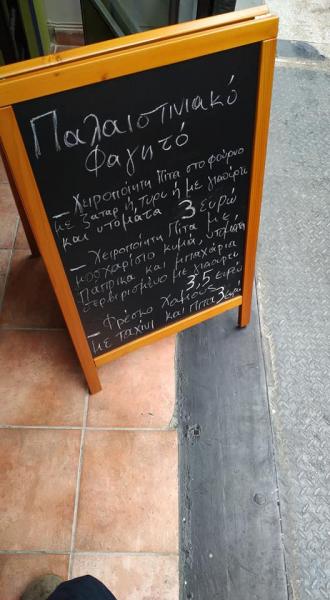 Παλαιστινιακό
φαγητό
– Χειροποίητη Πίτα στο φούρνο
με ζαταρ ή τυρι ή με γιαούρτι
και ντομάτα 3 ευρώ
– Χειροποίητη Πίτα με
μοσχαρίσιο κυμά, ντομάτα
πάπρικα και μπαχάρια
σερβιρισμένο με γιαούρτι
3,5 ευρώ
– Φρέσκο Χούμους
με ταχίνι και πιτα 3 ευρώ